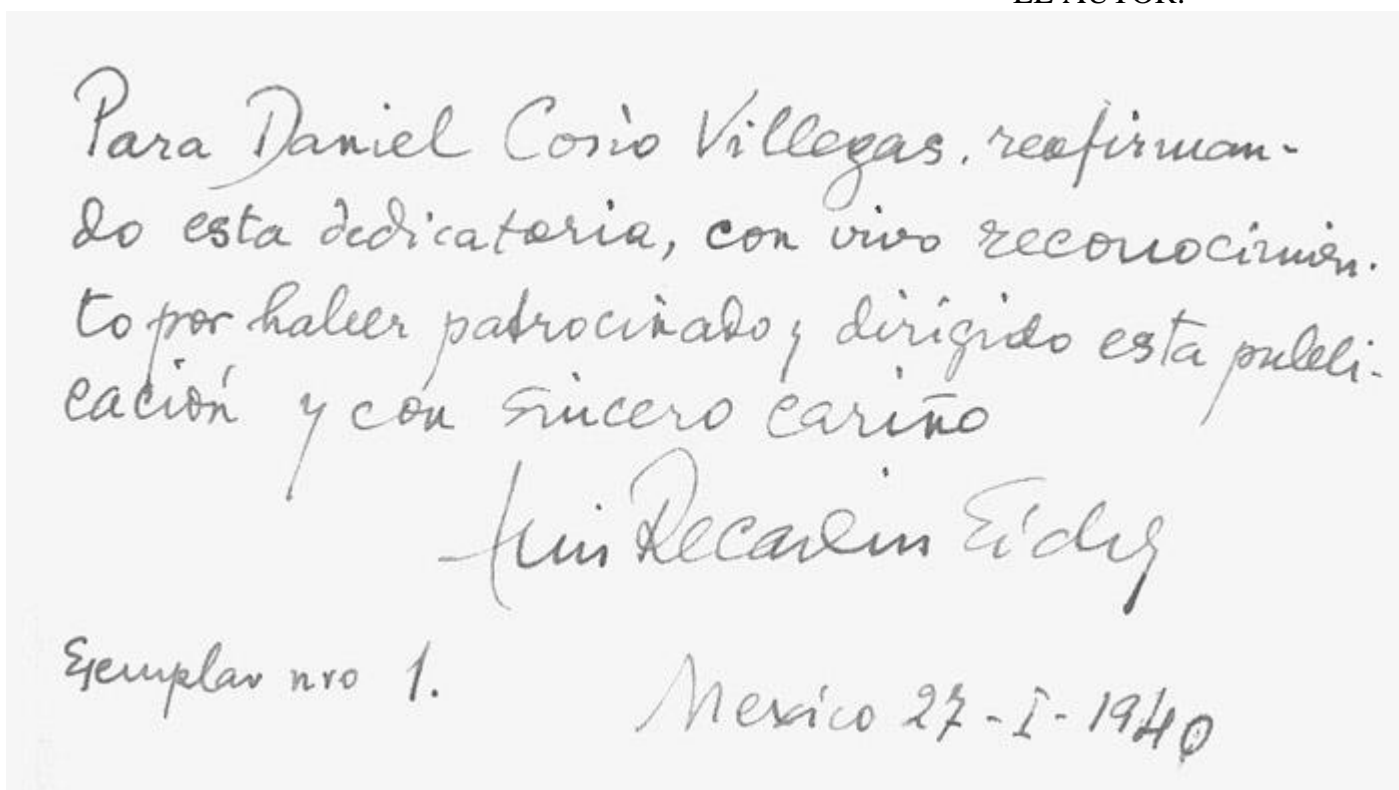 EL AUTOR.
Para Daniel Cosío Villegas, reafirman-
do esta dedicatoria, con vivo reconocimien-
to por haber patrocinado y dirigido esta publi-
cación y con sincero cariño
Luis Recaséns Siches
Ejemplar nro 1.
Mexico 27-I-1940